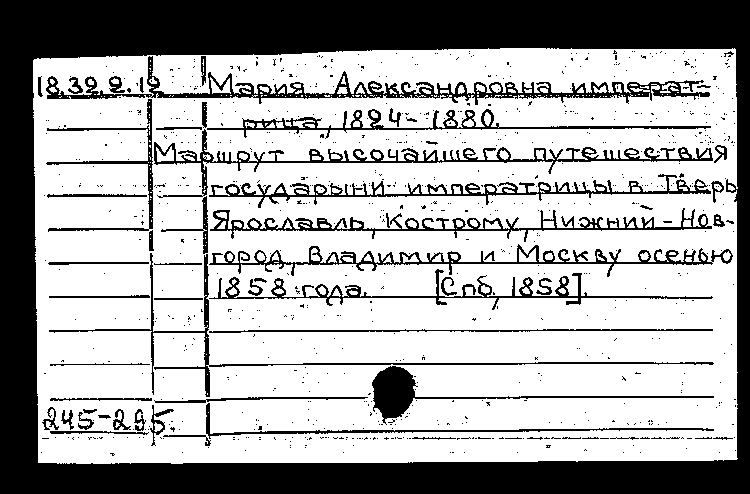 18.39.2.12 Мария Александровна, императ-
рица, 1824-1880.
Маршрут высочайшего путешествия
государыни императрицы в Тверь,
Ярославль, Кострому, Нижний-Нов-
город, Владимир и Москву осенью
1858 года. [Спб, 1858].
245-295.